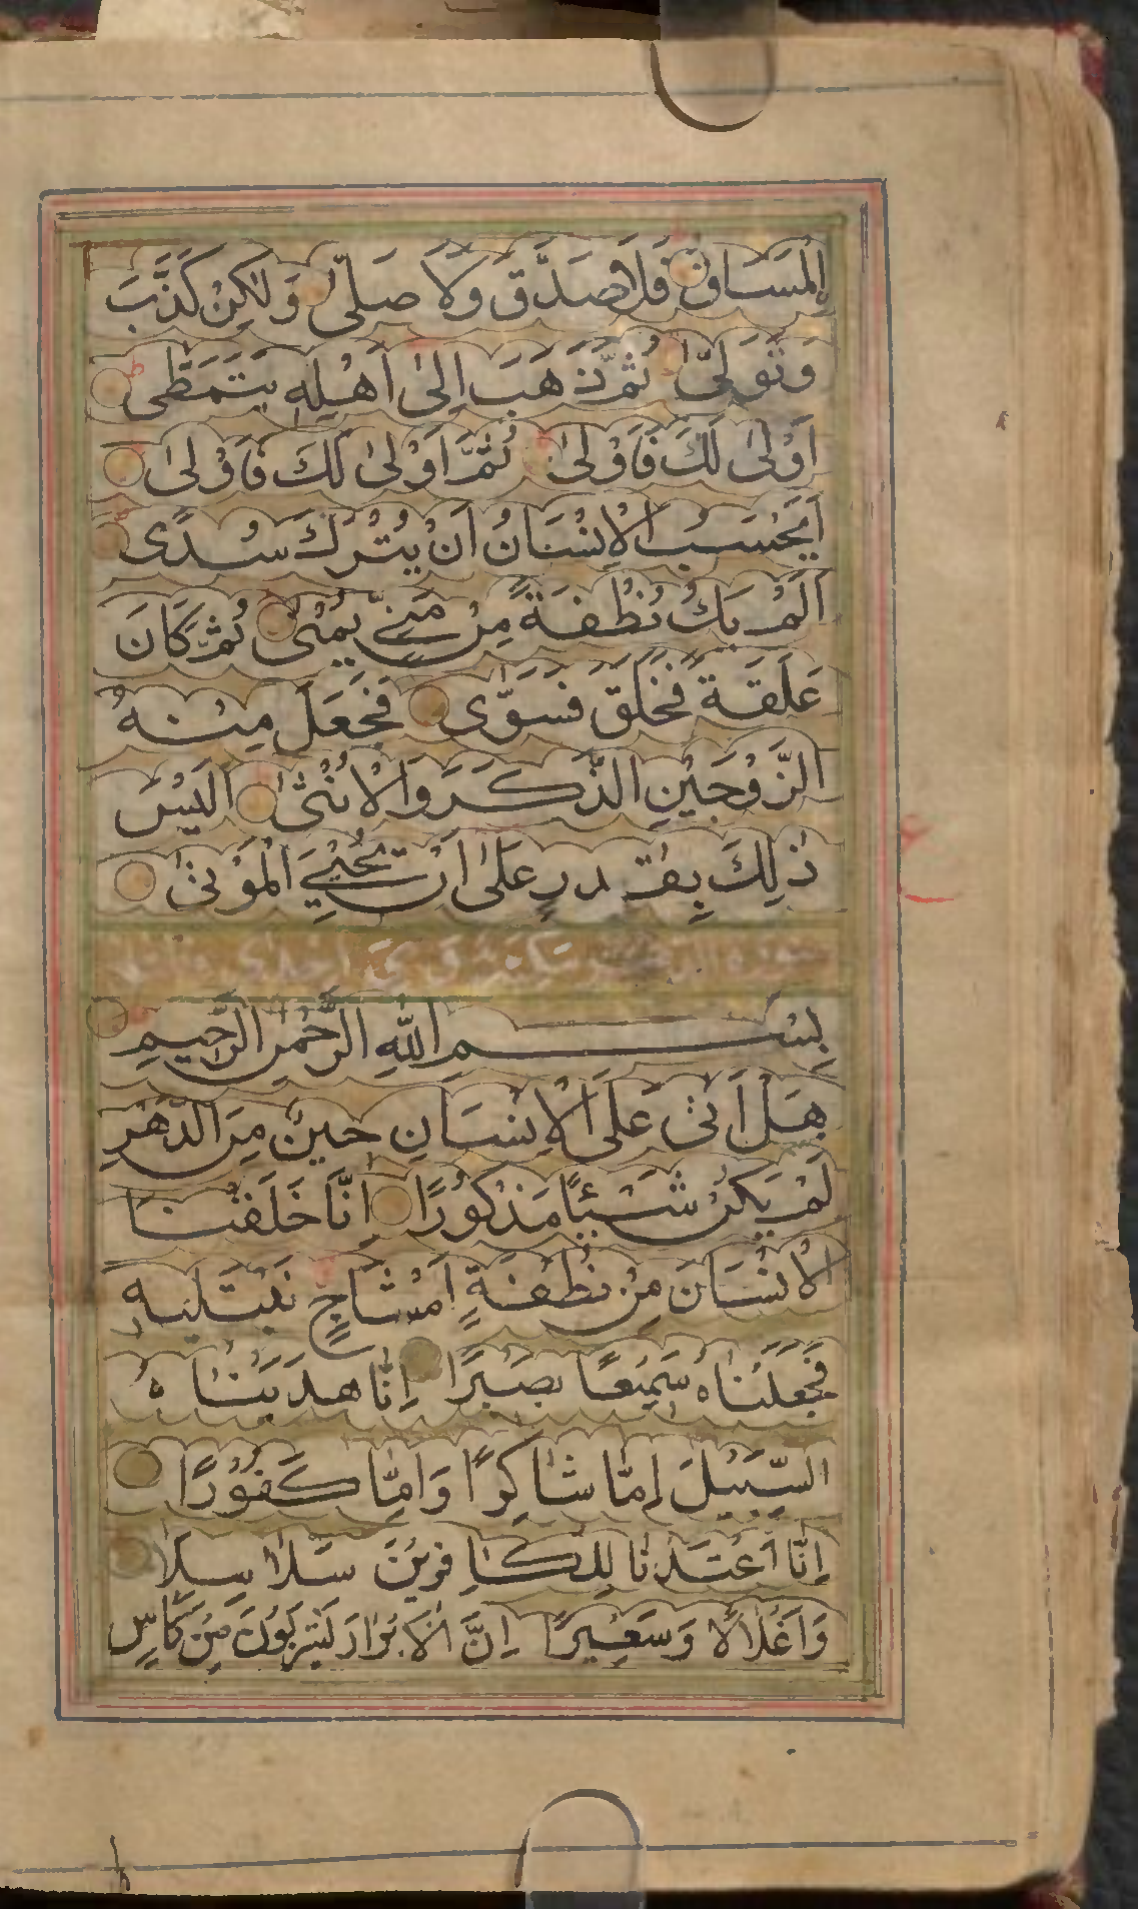 الْمَسَاقُ فَلَا صَدَّقَ وَلَا صَلّٰى وَلٰكِنْ كَذَّبَ
وَتَوَلّىٰ ثُمَّ ذَهَبَ اِلىٰ اَهْلِهٖ يَتَمَطّٰى
اَوْلىٰ لَكَ فَاَوْلىٰ ثُمَّ اَوْلىٰ لَكَ فَاَوْلىٰ
اَيَحْسَبُ الْاِنْسَانُ اَنْ يُتْرَكَ سُدًى
اَلَمْ يَكُ نُطْفَةً مِنْ مَنِيٍّ يُمْنىٰ ثُمَّ كَانَ
عَلَقَةً فَخَلَقَ فَسَوّٰى فَجَعَلَ مِنْهُ
الزَّوْجَيْنِ الذَّكَرَ وَالْاُنْثىٰ اَلَيْسَ
ذٰلِكَ بِقٰدِرٍ عَلىٰ اَنْ يُحْيِيَ الْمَوْتىٰ
بِسْمِ اللّٰهِ الرَّحْمٰنِ الرَّحِيمِ
هَلْ اَتىٰ عَلَى الْاِنْسَانِ حِينٌ مِنَ الدَّهْرِ
لَمْ يَكُنْ شَيْئًا مَذْكُورًا اِنَّا خَلَقْنَا
الْاِنْسَانَ مِنْ نُطْفَةٍ اَمْشَاجٍ نَبْتَلِيهِ
فَجَعَلْنَاهُ سَمِيعًا بَصِيرًا اِنَّا هَدَيْنَاهُ
السَّبِيلَ اِمَّا شَاكِرًا وَاِمَّا كَفُورًا
اِنَّا اَعْتَدْنَا لِلْكَافِرِينَ سَلَاسِلَا
وَاَغْلَالًا وَسَعِيرًا اِنَّ الْاَبْرَارَ يَشْرَبُونَ مِنْ كَاْسٍ